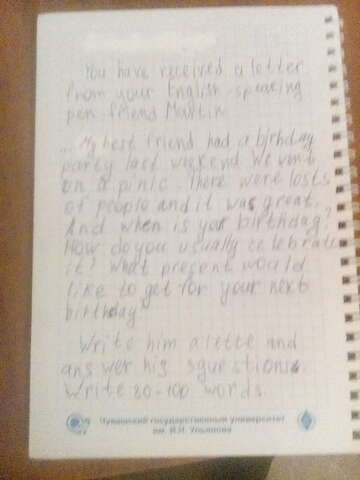 You have received a letter
from your English-speaking
pen friend Martin
... My best friend had a birhday
party last weekend We went
on a pinic. There were losts
of people and it was great.
And when is your birthday?
How do you usually celebrate
it? What present would
like to get for your next
birthday
Write him a lette and
answer his squestions.
Write 80-100 words.
Чувашский государственный университет
им. И.Н. Ульянова